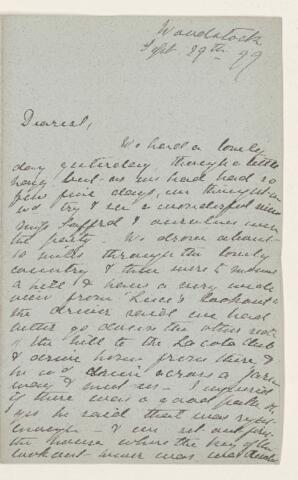 Woodstock
Sept. 29th 99
Dearest,
We had a lovely
day yesterday, though a little
hazy but as we had had so
few fine days, we thought we
w'd try & see a wonderful view
& ourselves were
the party. We drove about
10 miles through the lovely
country & then were to
a hill & have a very wide
view from Lookout
the driver said we had
better go down the other side
of the hill to the Lacota Club
& drive home from there &
he w'd drive across a farm
way & meet us - I inquired
if there was a good path &
yes he said that was right
enough - & we set out for
the house where the key of the
lookout was